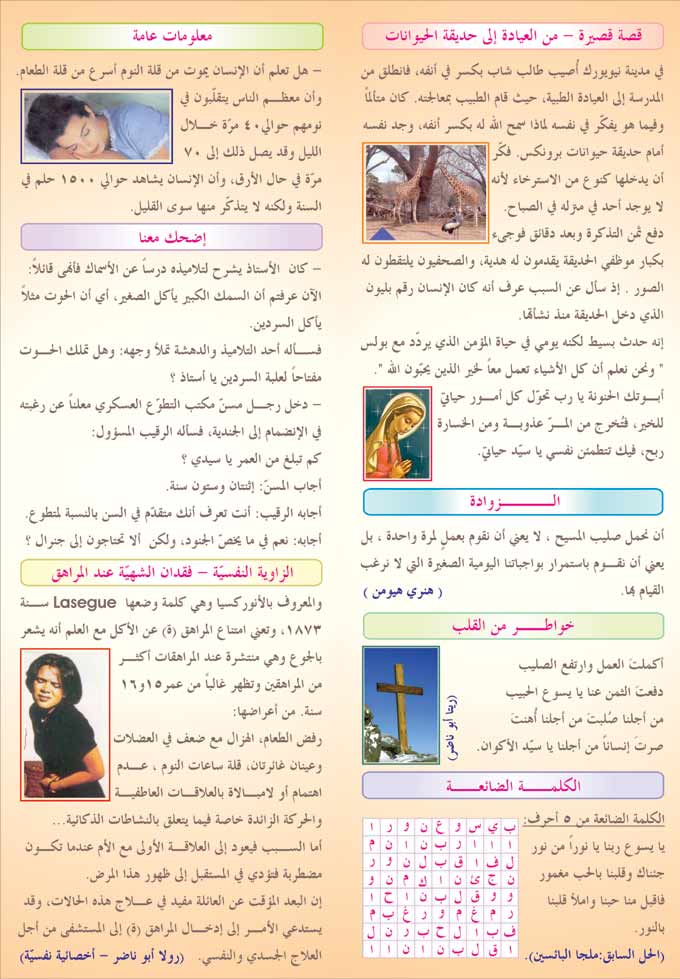 قصة قصيرة – من العيادة إلى حديقة الحيوانات
في مدينة نيويورك أُصيب طالب شاب بكسر في أنفه، فانطلق من
المدرسة إلى العيادة الطبية، حيث قام الطبيب بمعالجته. كان متألماً
وفيما هو يفكّر في نفسه لماذا سمح الله له بكسر أنفه، وجد نفسه
أمام حديقة حيوانات برونكس. فكّر
أن يدخلها كنوع من الاسترخاء لأنه
لا يوجد أحد في منزله في الصباح.
دفع ثمن التذكرة وبعد دقائق فوجىء
بكبار موظفي الحديقة يقدمون له هدية، والصحفيون يلتقطون له
الصور . إذ سأل عن السبب عرف أنه كان الإنسان رقم بليون
الذي دخل الحديقة منذ نشأتها.
إنه حدث بسيط لكنه يومي في حياة المؤمن الذي يردّد مع بولس
" ونحن نعلم أن كل الأشياء تعمل معاً لخير الذين يحبّون الله ".
أبــوتك الحنونة يا رب تحوّل كل أمــور حياتيّ
للخير، فتُخرج من المــرّ عذوبــة ومن الخسارة
ربح، فيك تتطمئن نفسي يا سيّد حياتيّ.
الـــزوادة
أن نحمل صليب المسيح ، لا يعني أن نقوم بعملٍ لمرة واحدة ، بل
يعني أن نقــوم باستمرار بواجباتنا اليومية الصغيرة التي لا نرغب
القيام بها. ( هنري هيومن )
خواطــر من القلب
أكملتَ العمل وارتفع الصليب
دفعتَ الثمن عنا يا يسوع الحبيب
من أجلنا صُلبتَ من أجلنا أُهنتَ
صرتَ إنساناً من أجلنا يا سيّد الأكوان.
(ريتا أبو ناضر)
الكلمــة الضائعــة
الكلمة الضائعة من ٥ أحرف:
يا يسوع ربنا يا نوراً من نور
جئناك وقلبنا بالحب مغمور
فاقبل منا حبنا واملأ قلبنا
بالنور.
(الحل السابق:ملجا البائسين).
ب ي س و ع ن و ر ا
ا ا ر ب ن ا ن م
ل ف ا ق ب ل ن و ر
ن ج ئ ن ا ك م ن و
و و ق ل ب ن ا ح ا
ر م غ م و ر غ ب م
ف ب ا ل ح ب ر ن ل
ا ق ل ب ن ا ن ا ا
معلومات عامة
– هل تعلم أن الإنسان يموت من قلة النوم أسرع من قلة الطعام.
وأن معظــم الناس يتقلّبون في
نومهم حوالي٤٠ مرّة خــلال
الليل وقد يصل ذلك إلى ٧٠
مرّة في حال الأرق، وأن الإنسان يشاهد حوالي ١٥٠٠ حلم في
السنة ولكنه لا يتذكّر منها سوى القليل.
إضحك معنا
– كان الأستاذ يشرح لتلاميذه درساً عن الأسماك فأنهى قائلاً:
الآن عرفتم أن السمك الكبير يأكل الصغير، أي أن الحوت مثلاً
يأكل السردين.
فســأله أحد التلاميذ والدهشة تملأ وجهه: وهل تملك الحــوت
مفتاحاً لعلبة السردين يا أستاذ ؟
– دخل رجــل مسنّ مكتب التطوّع العسكري معلناً عن رغبته
في الإنضمام إلى الجندية، فسأله الرقيب المسؤول:
كم تبلغ من العمر يا سيدي ؟
أجاب المسنّ: إثنتان وستون سنة.
أجابه الرقيب: أنت تعرف أنك متقدّم في السن بالنسبة لمتطوع.
أجابه: نعم في ما يخصّ الجنود، ولكن ألا تحتاجون إلى جنرال ؟
الزاوية النفسيّة – فقدان الشهيّة عند المراهق
والمعروف بالأنوركسيا وهي كلمة وضعها Lasegue سـنة
١٨٧٣، وتعني امتناع المراهق (ة) عن الأكل مع العلم أنه يشعر
بالجوع وهي منتشرة عند المراهقات أكثــر
من المراهقين وتظهر غالباً من عمر١٥و١٦
سنة. من أعراضها:
رفض الطعام، الهزال مع ضعف في العضلات
وعينان غائرتان، قلة ساعات النوم ، عــدم
اهتمام أو لامبــالاة بالعلاقات العاطفيــة
والحركة الزائدة خاصة فيما يتعلق بالنشاطات الذكائية...
أما الســبب فيعود إلى العلاقــة الأولى مع الأم عندما تكــون
مضطربة فتؤدي في المستقبل إلى ظهور هذا المرض.
إن البعد المؤقت عن العائلة مفيد في عــلاج هذه الحالات، وقد
يستدعي الأمــر إلى إدخــال المراهق (ة) إلى المستشفى من أجل
العلاج الجسدي والنفسي. (رولا أبو ناضر – أخصائية نفسيّة)